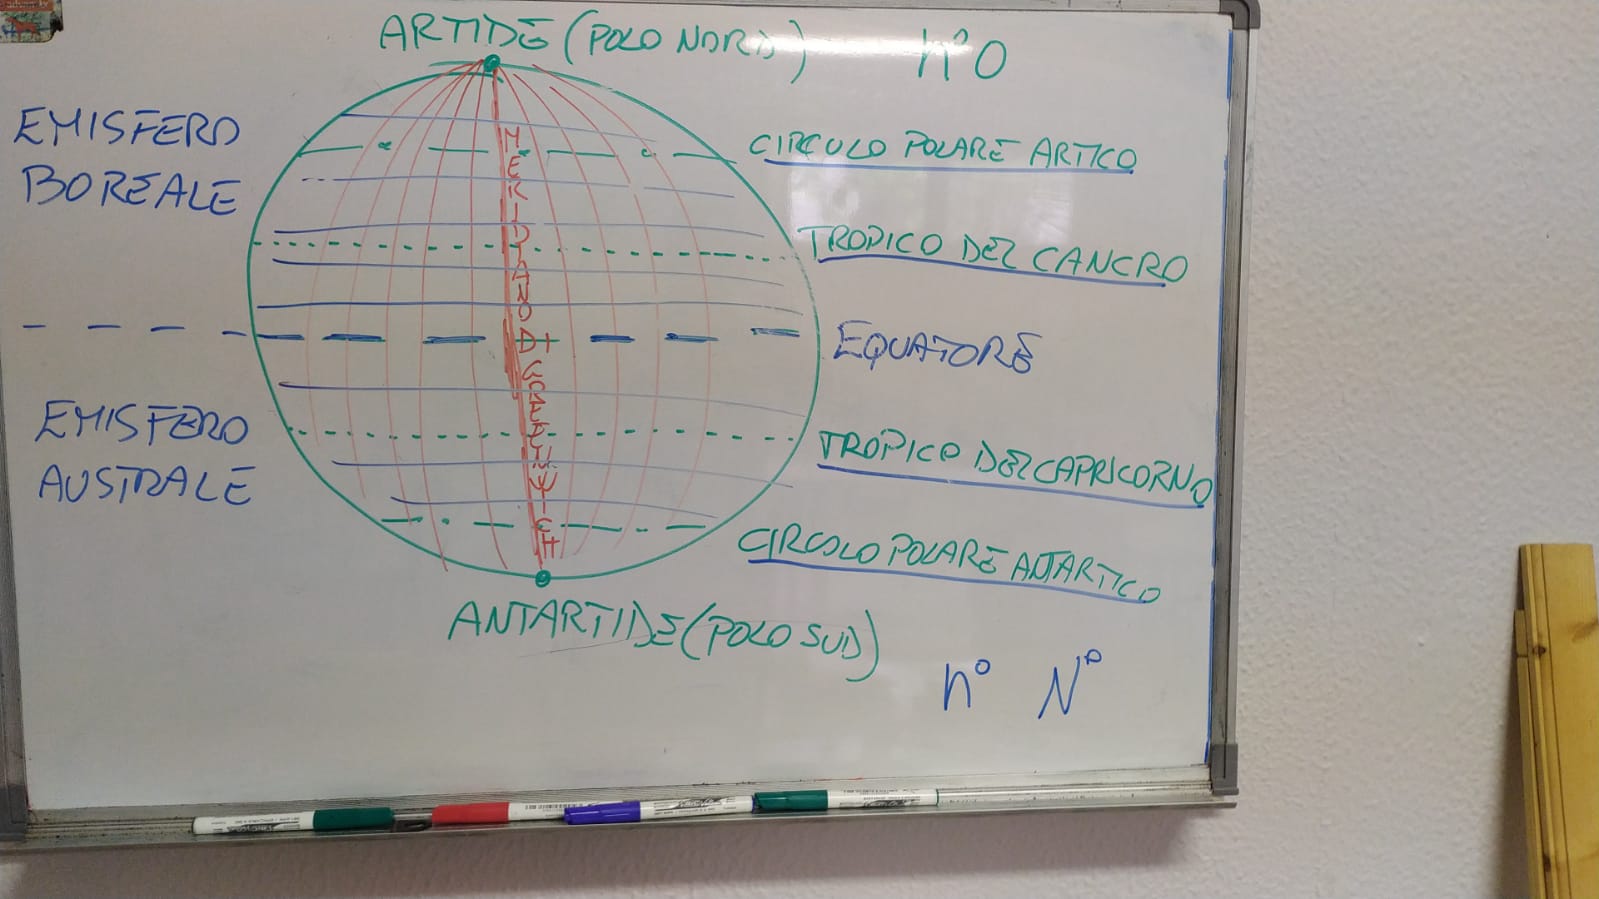 ARTIDE (POLO NORD)
n°0
EMISFERO
BOREALE
CIRCULO POLARE ARTICO
TROPICO DEL CANCRO
EQUATORE
MERIDIANO DI GREENWICH
EMISFERO
AUSTRALE
TROPICO DEL CAPRICORNO
CIRCOLO POLARE ANTARTICO
ANTARTIDE (POLO SUD)
n° N°